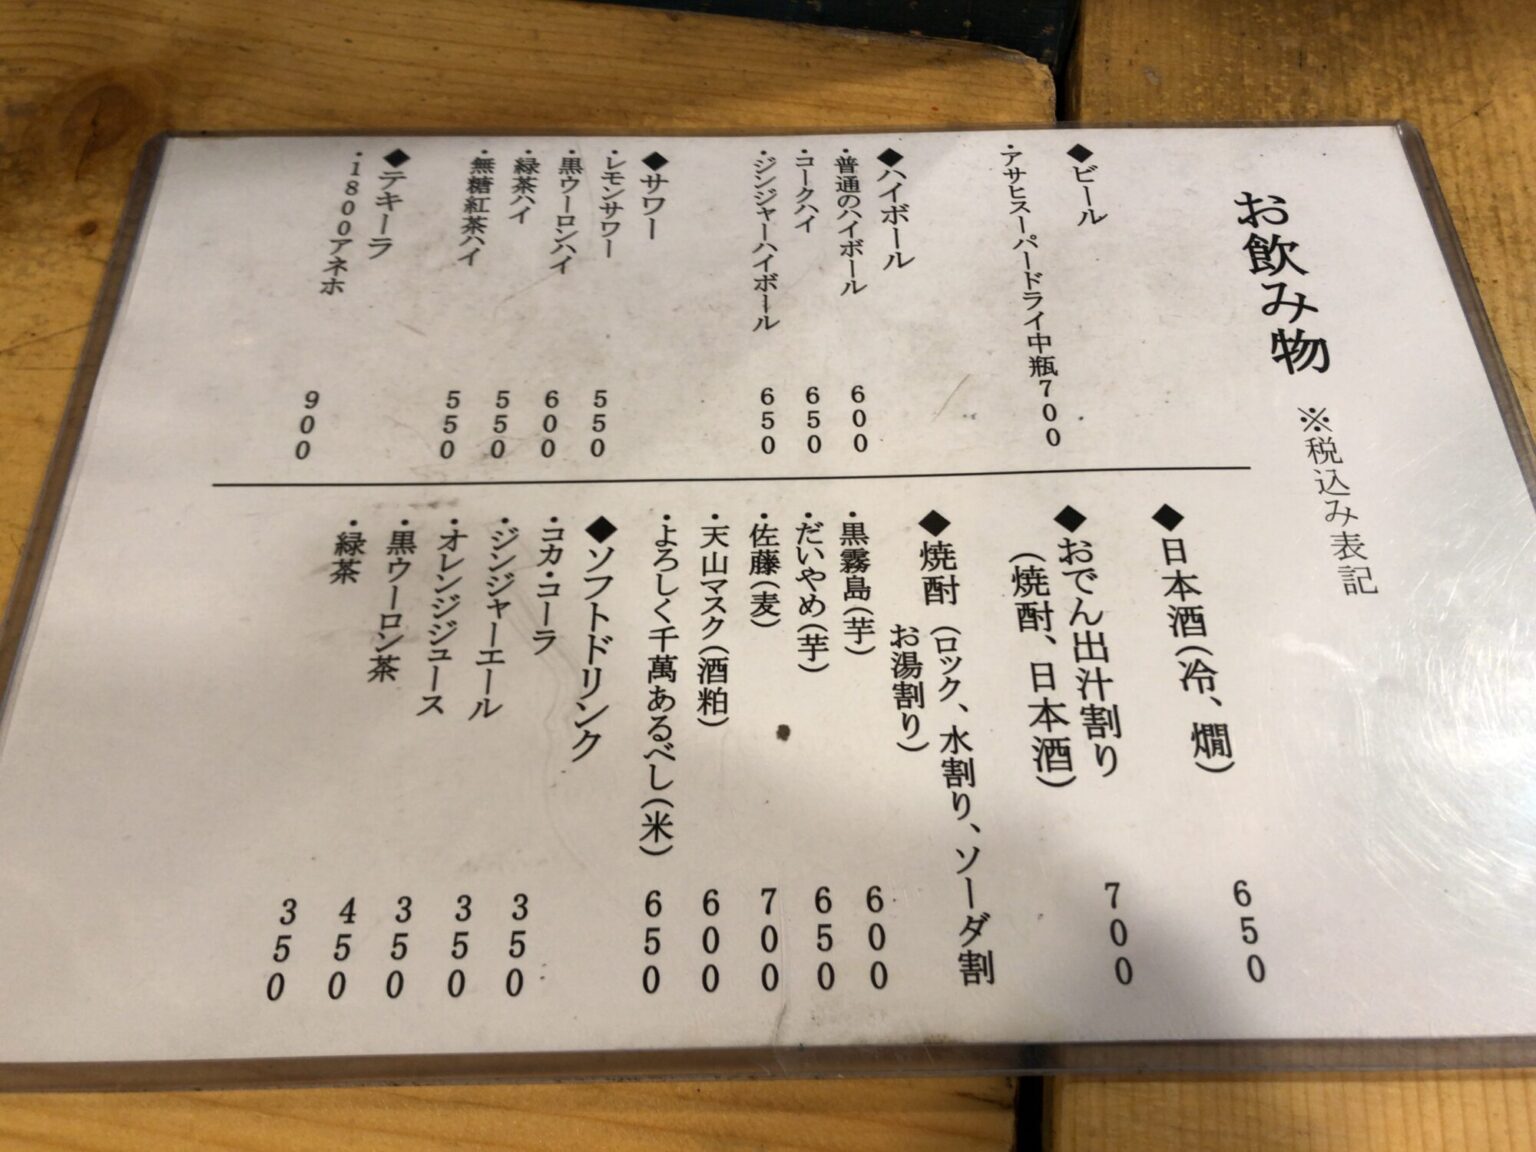 お飲み物 ※税込み表記
◆ビール
・アサヒスーパードライ中瓶700
◆ハイボール
・普通のハイボール 600
・コークハイ 650
・ジンジャーハイボール 650
◆サワー
・レモンサワー 550
・黒ウーロンハイ 600
・緑茶ハイ 550
・無糖紅茶ハイ 550
◆テキーラ
・1800アネホ 900
◆日本酒(冷、燗) 650
◆おでん出汁割り
(焼酎、日本酒) 700
◆焼酎(ロック、水割り、ソーダ割
お湯割り)
・黒霧島(芋) 600
・だいやめ(芋) 650
・佐藤(麦) 700
・天山マスク(酒粕) 600
・よろしく千萬あるべし(米) 650
◆ソフトドリンク
・コカ・コーラ 350
・ジンジャーエール 350
・オレンジジュース 350
・黒ウーロン茶 450
・緑茶 350